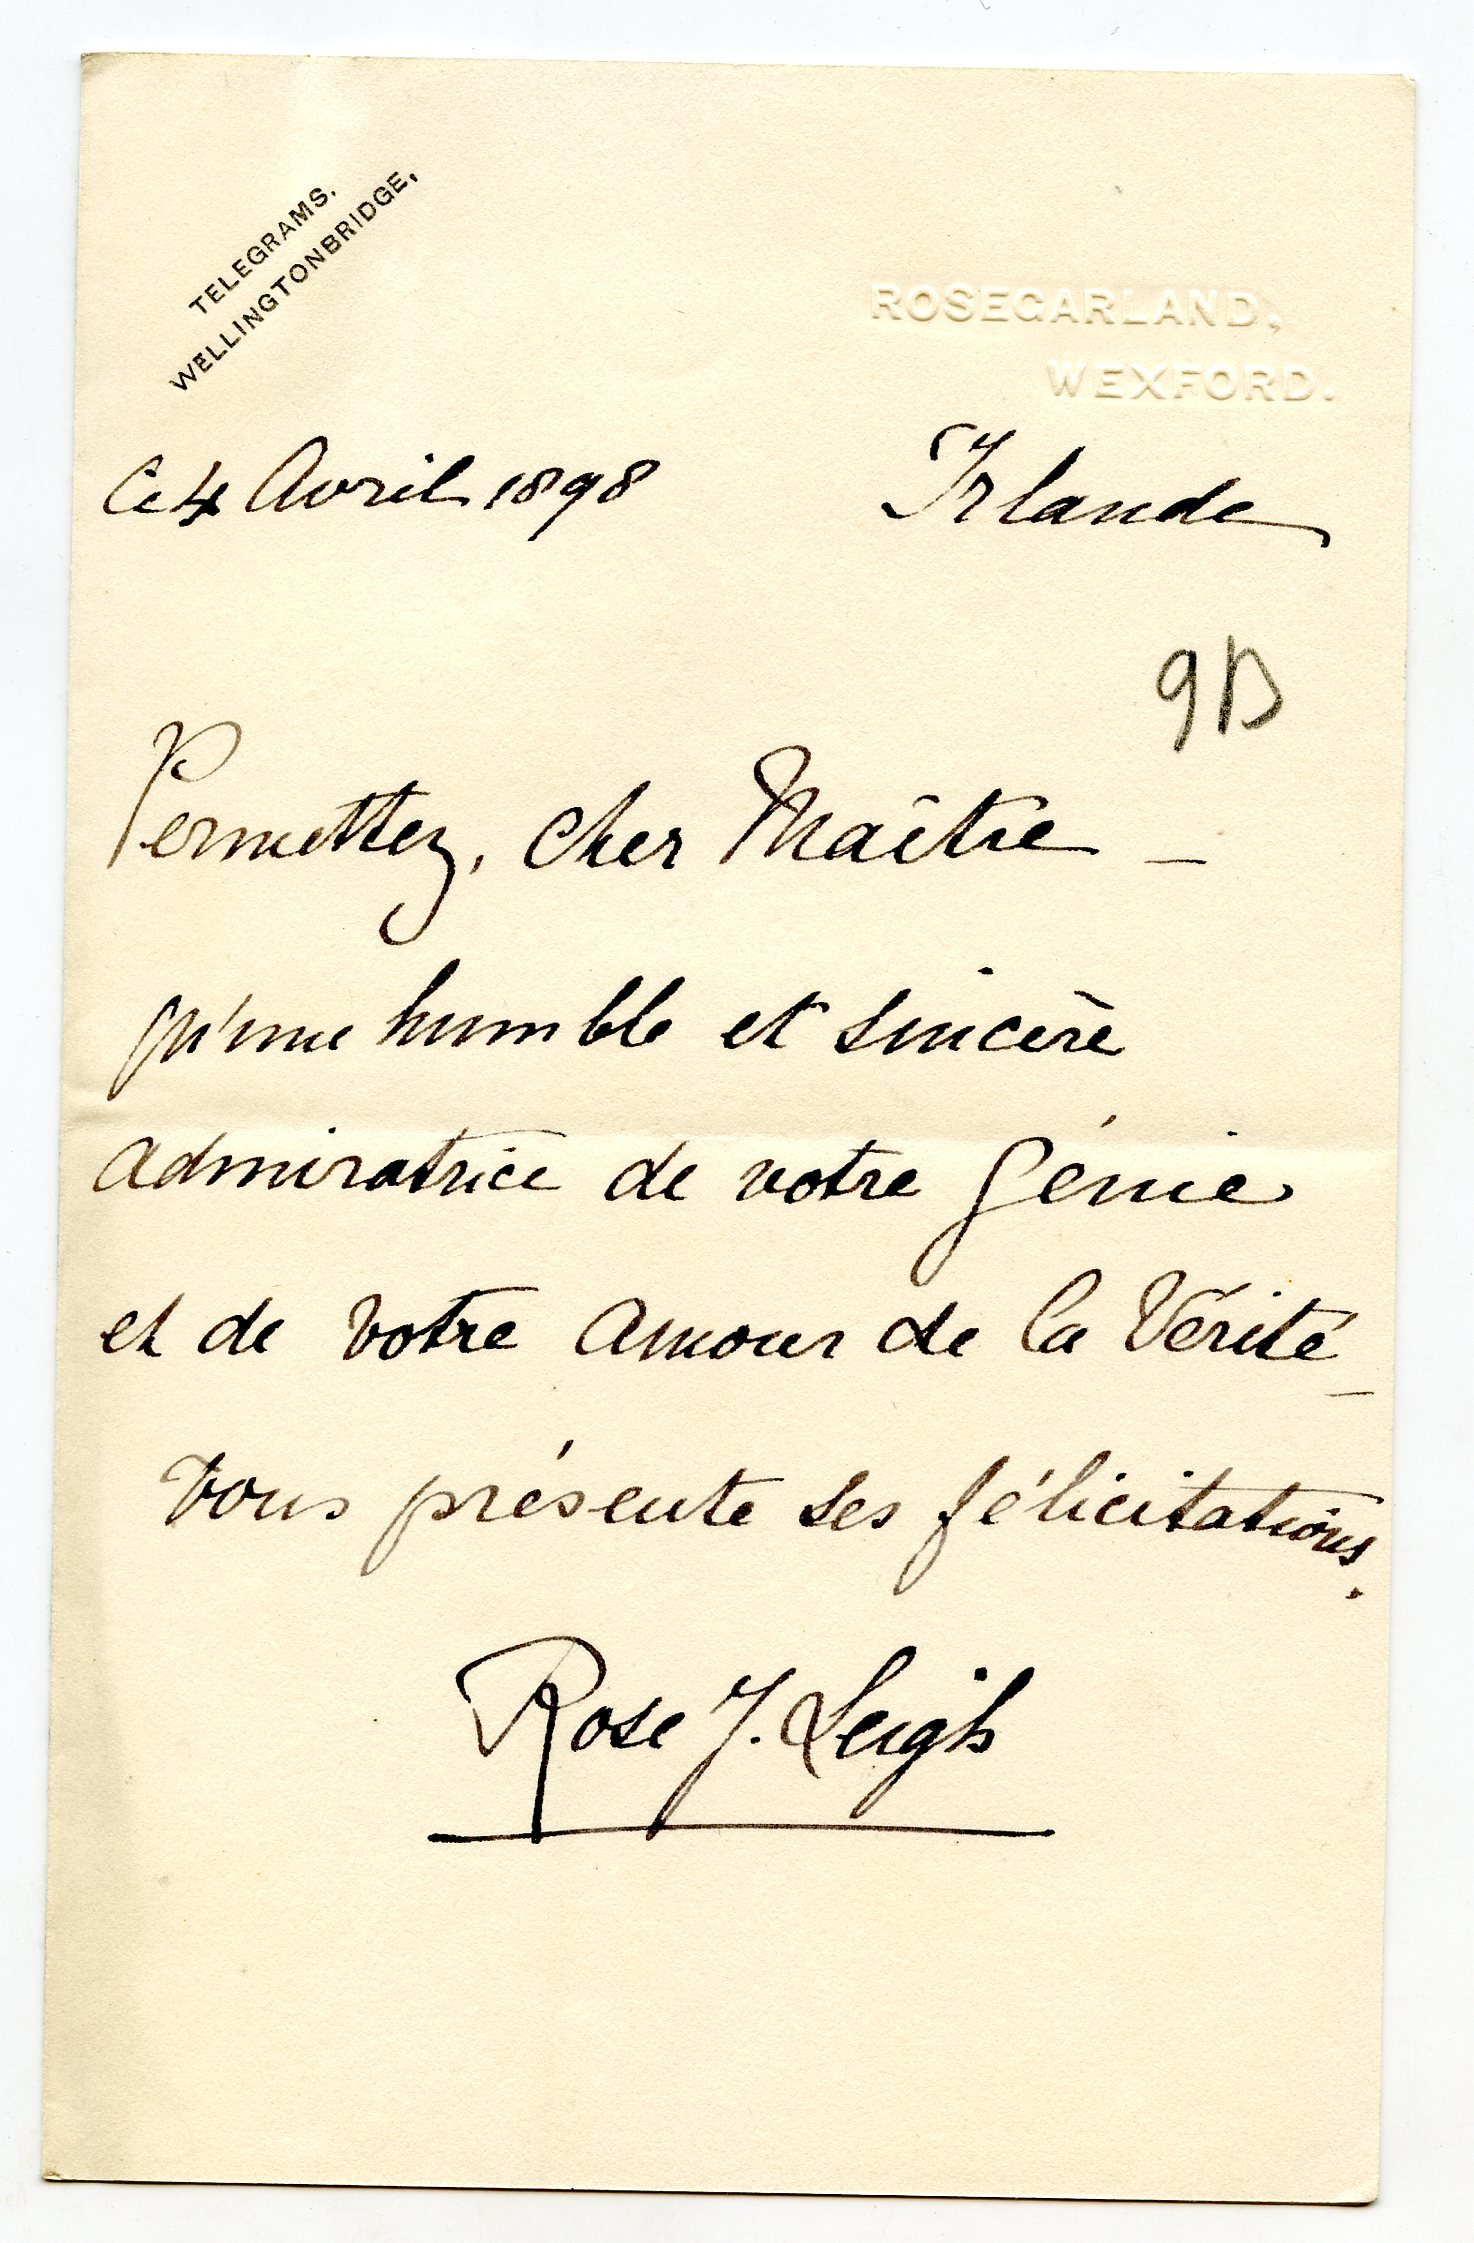 TELEGRAMS.
WELLINGTONBRIDGE,
ROSEGARLAND,
WEXFORD.
Ce 4 Avril 1898
Irlande
9B
Permettez, Cher Maître –
qu'une humble et sincère
admiratrice de votre Génie
et de votre Amour de la Vérité –
Vous présente ses félicitations.
Rose J. Leigh